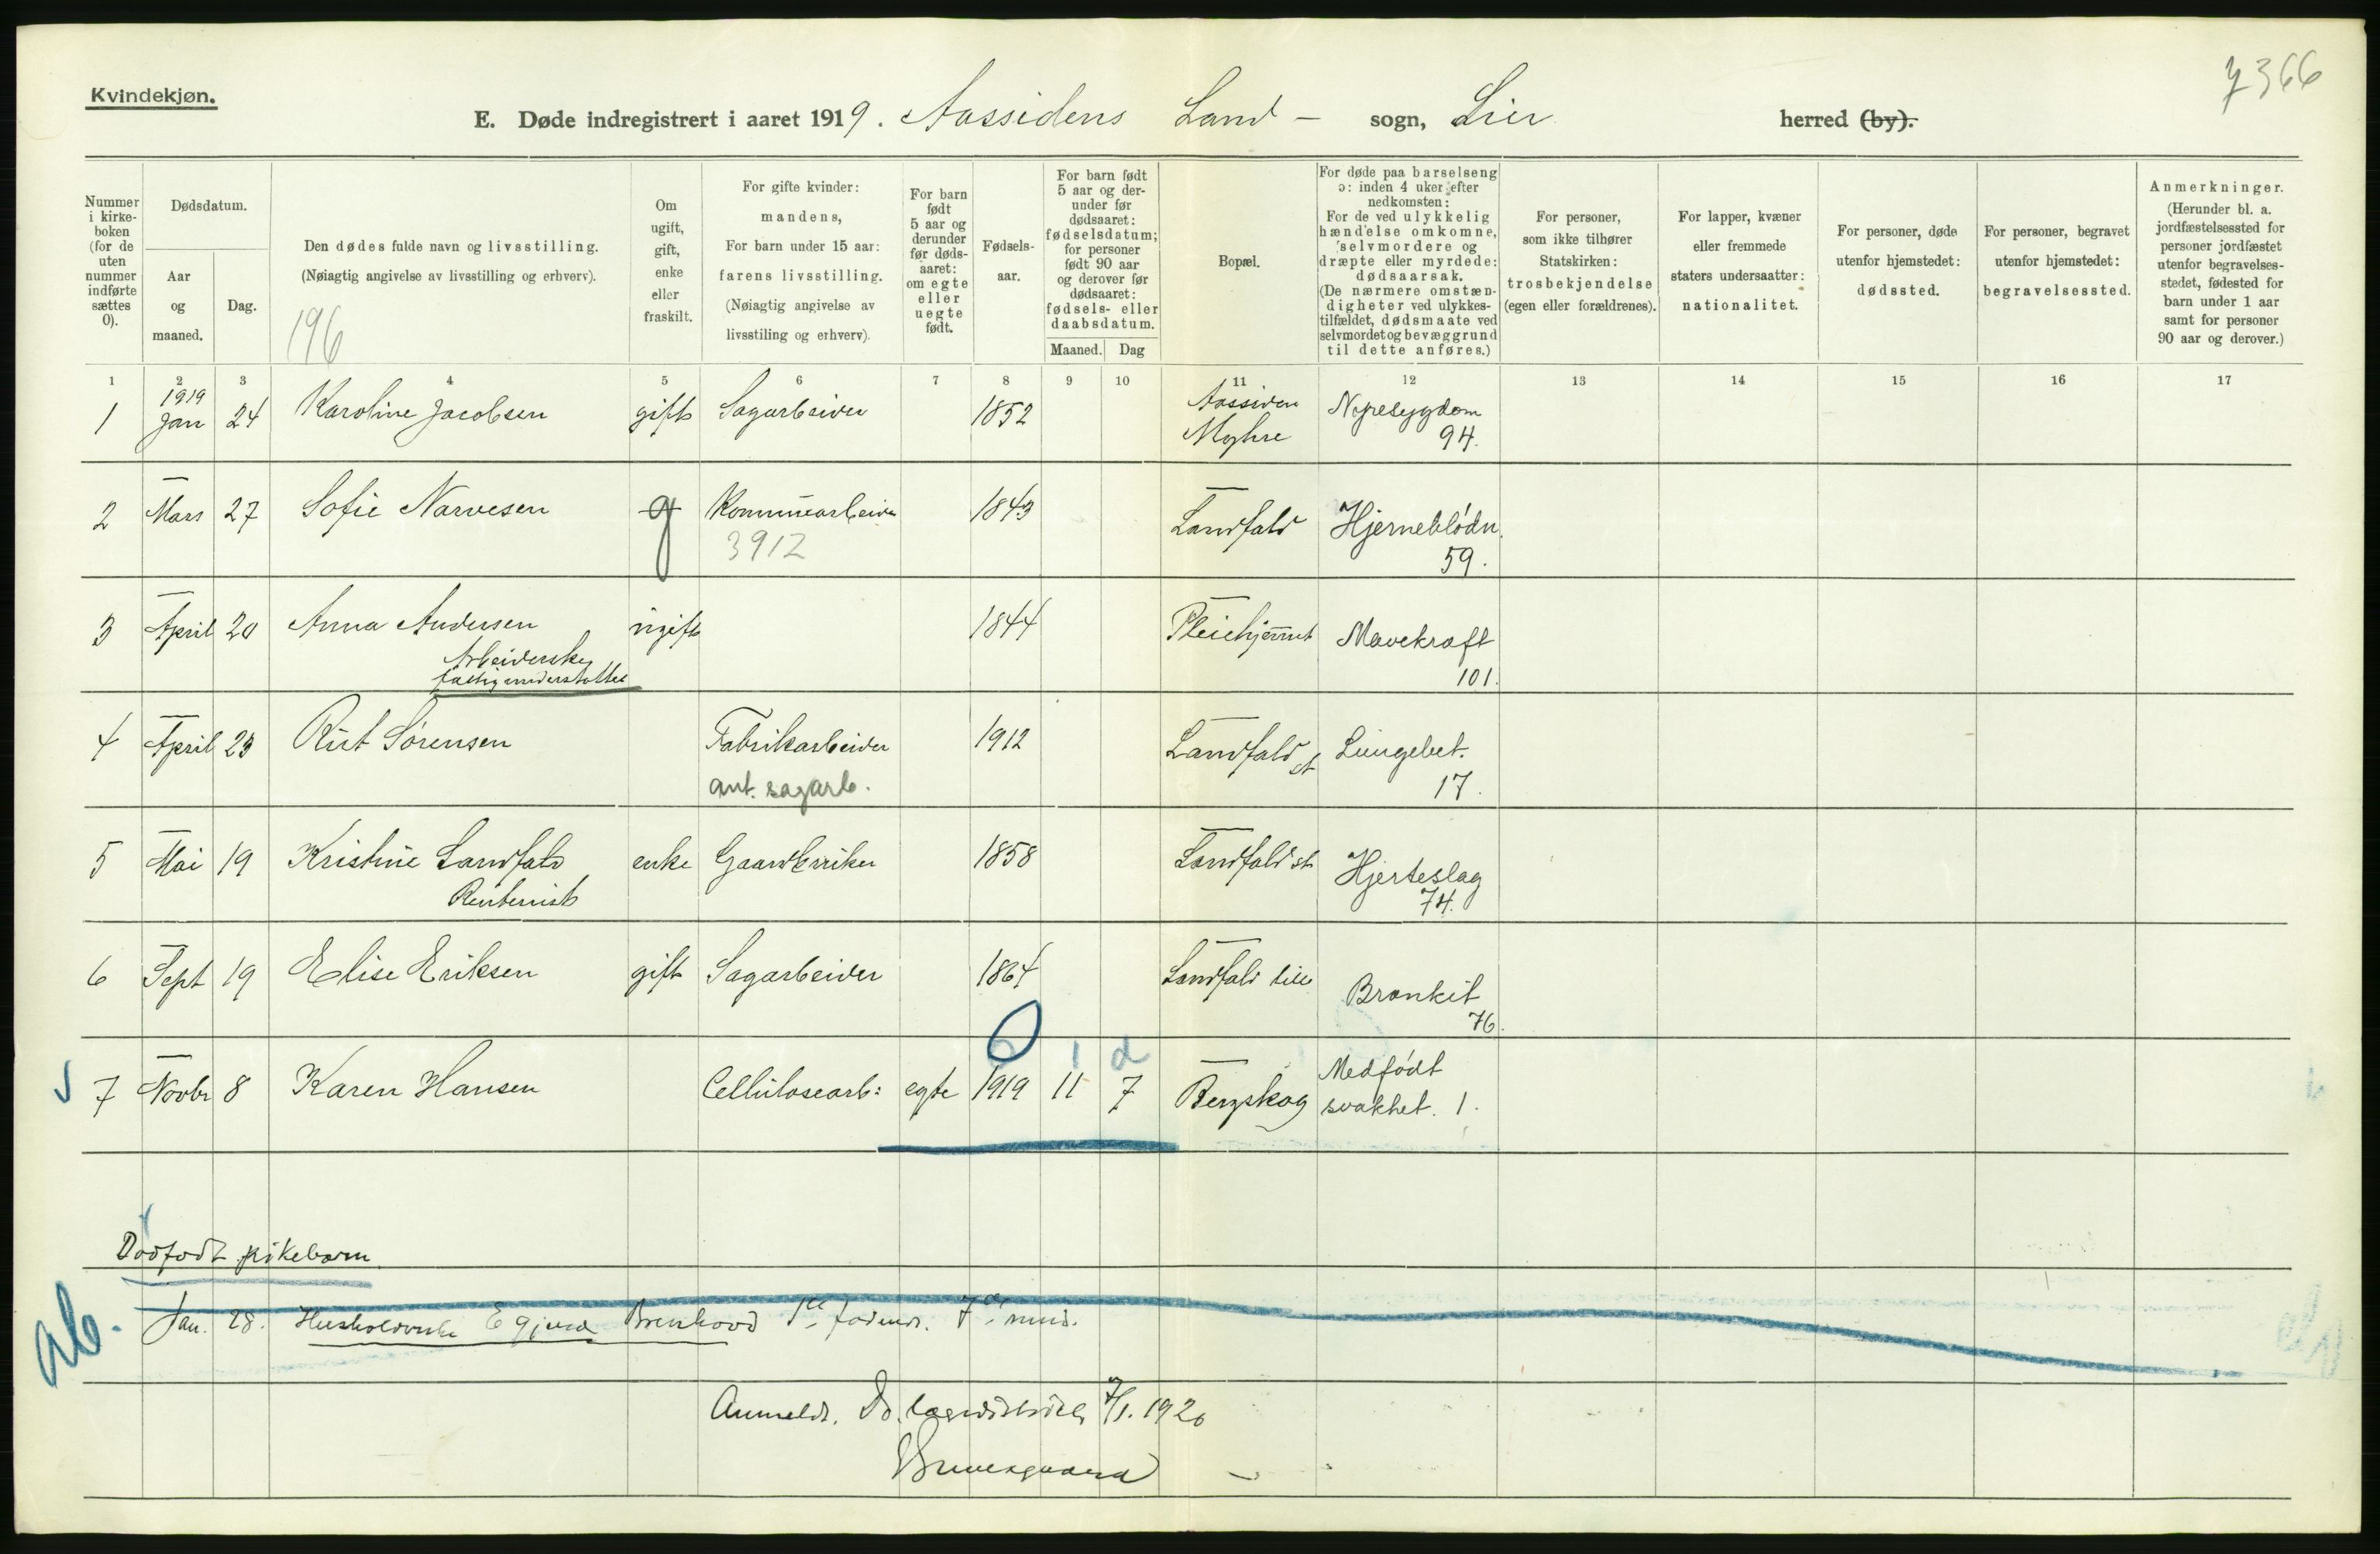 7366
Kvindekjøn.
E. Døde indregistrert i aaret 1919. Aassidens Land- sogn, Lier herred (by).
Nummer i kirke-boken (for de uten nummer indførte sættes 0).
Dødsdatum.
Aar og maaned.
Dag.
Den dødes fulde navn og livsstilling.
(Nøiagtig angivelse av livsstilling og erhverv).
196
Om ugift, gift, enke eller fraskilt.
For gifte kvinder: mandens,
For barn under 15 aar: farens livsstilling.
(Nøiagtig angivelse av livsstiling og erhverv).
For barn født 5 aar og derunder før døds-aaret: om egte eller uegte født.
Fødsels-aar.
For barn født 5 aar og der-under før dødsaaret: fødselsdatum; for personer født 90 aar og derover før dødsaaret: fødsels- eller daabsdatum.
Maaned. Dag
Bopæl.
For døde paa barselseng ɔ: inden 4 uker efter nedkomsten:
For de ved ulykkelig hændelse omkomne, selvmordere og dræpte eller myrdede: dødsaarsak.
(De nærmere omstæn-digheter ved ulykkes-tilfældet, dødsmaate ved selvmordet og bevæggrund til dette anføres.)
For personer, som ikke tilhører Statskirken: trosbekjendelse (egen eller forældrenes).
For lapper, kvæner eller fremmede staters undersaatter: nationalitet.
For personer, døde utenfor hjemstedet: dødssted.
For personer, begravet utenfor hjemstedet: begravelsessted.
Anmerkninger.
(Herunder bl. a. jordfæstelsessted for personer jordfæstet utenfor begravelses-stedet, fødested for barn under 1 aar samt for personer 90 aar og derover.)
1 2 3 4 5 6 7 8 9 10 11 12 13 14 15 16 17
1 1919 Jan 24 Karoline Jacobsen gift Sagarbeider 1852 Aassiden Myhre Nyresygdom 94.
2 Mars 27 Sofie Narvesen g Kommunearbeider 1843 Landfald Hjerneblødn. 59.
3912
3 April 20 Anna Andersen ugift 1844 Pleiehjemmet Mavekræft 101.
Arbeiderske
fattigunderstøttet
4 April 23 Rut Sørensen Fabrikarbeider 1912 Landfald st Lungebet. 17.
ant. sagarb.
5 Mai 19 Kristine Landfald enke Gaardbruker 1858 Landfald st Hjerteslag 74.
Rentenist
6 Sept 19 Elise Eriksen gift Sagarbeider 1864 Landfald lille Bronkit 76.
1 d
7 Novbr 8 Karen Hansen Cellulosearb: egte 1919 11 7 Bergskog Medfødt svakhet. 1.
Dødfødt pikebarn
ab. Jan. 28. 
Anmeldt. 7/1. 1920